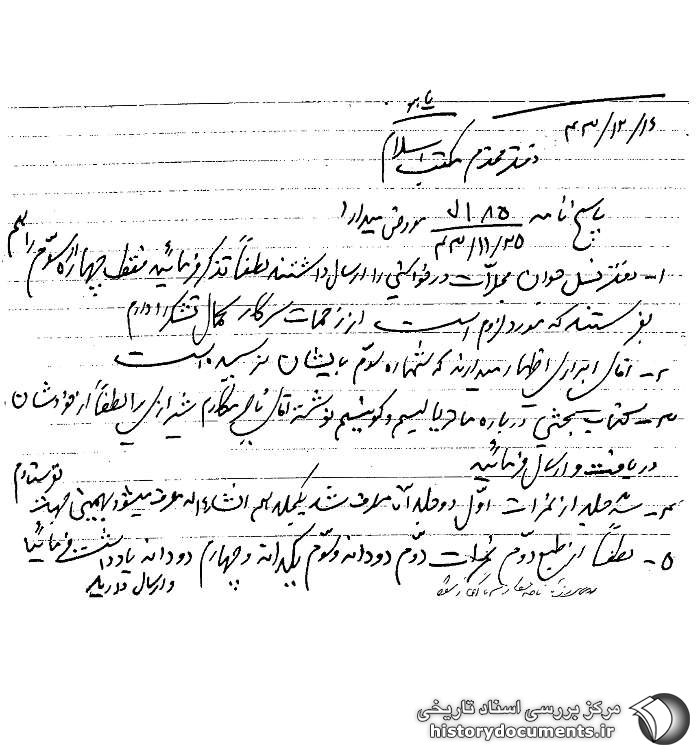 یا هو
۴۳/۱۲/۱۶
دفتر محترم مکتب اسلام
پاسخ نامه ۷۱۸۵ معروض میدارد
۴۳/۱۱/۲۵
۱- دفتر نسل جوان مجلات درخواستی را ارسال داشتند لطفاً تذکر فرمائید فقط چهار از شماره سوم را هم
بفرستند که مورد لزوم است از زحمات سرکار کمال تشکر را دارم
۲- آقای اظهار میدارند که شماره سوم بایشان نرسیده است
۳- کتاب بحثی درباره ماتریالیسم و کمونیسم نوشته آقای ناصر مکارم شیرازی را لطفاً از خودشان
دریافت و ارسال فرمائید
۴- سه جلد از نمرات اول دو جلد آن مصرف شد یکجلد هم انشاءاله مصرف میشود بهمین جهت نفرستادم
۵- لطفاً از طبع دوم نمرات دوم دو دانه و سوم یکدانه و چهارم دو دانه یادداشت فرمائید
و ارسال دارید
مرکز بررسی اسناد تاریخی
historydocuments.ir